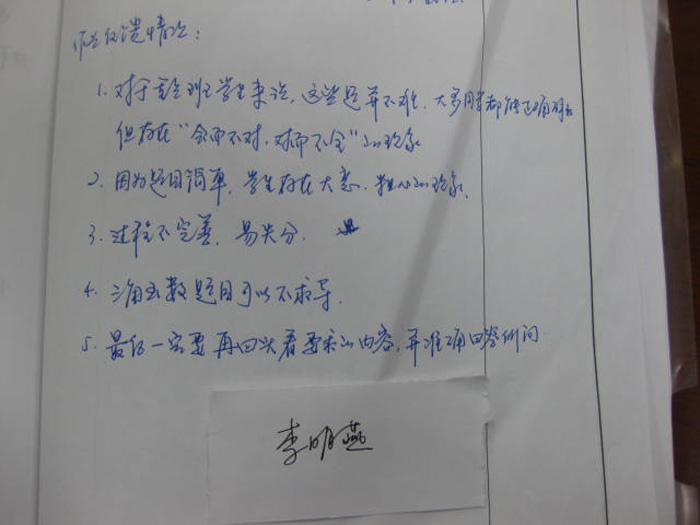 作业反馈情况:
1. 对于重点班学生来说,这些题并不难,大多同学都能正确
但存在“会而不对,对而不全”的现象
2. 因为题目简单,学生存在大意、粗心的现象.
3. 过程不完善,易失分.
4. 三角函数题目可以不求导.
5. 最后一定要再回头看要求的内容,并准确回答所问
李明燕